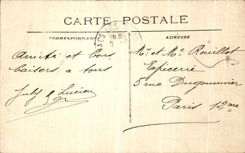 CARTE POSTALE
CORRESPONDANCE
ADRESSE
Amitié et bons
baisers a tous
July & Lucien
Mr et Me Rouillot
Epicerie
5 rue Dugommier
Paris 12me